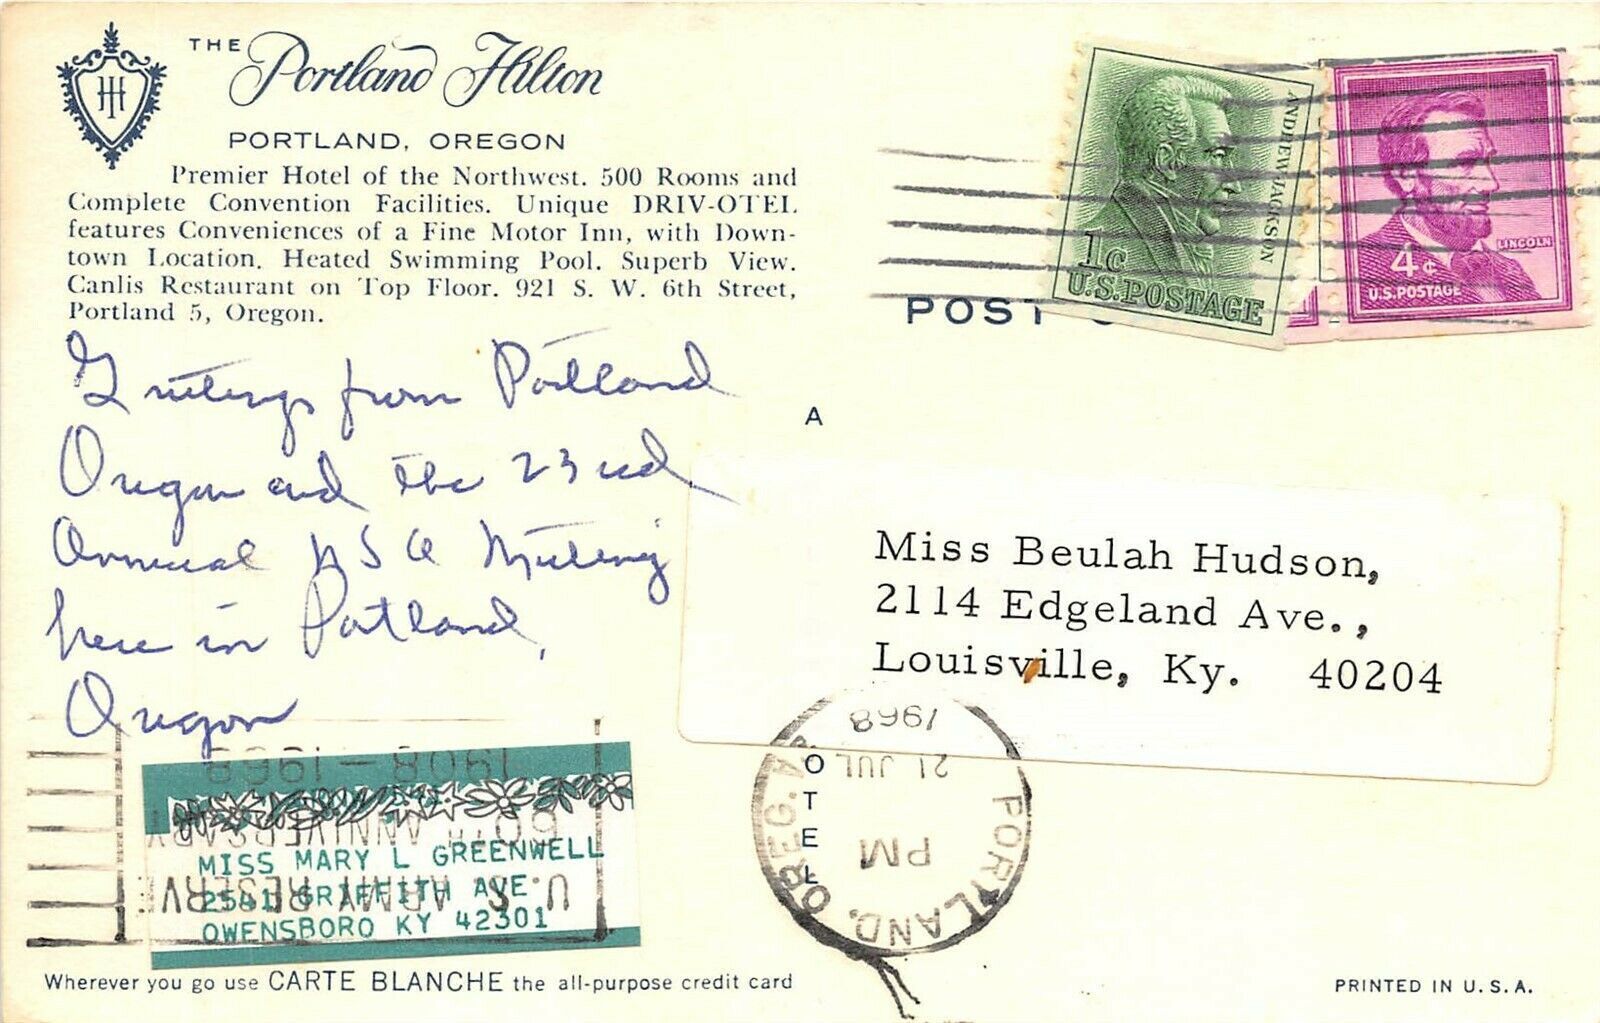 THE Portland Hilton
PORTLAND, OREGON
Premier Hotel of the Northwest. 500 Rooms and
Complete Convention Facilities. Unique DRIV-OTEL
features Conveniences of a Fine Motor Inn, with Down-
town Location. Heated Swimming Pool. Superb View.
Canlis Restaurant on Top Floor. 921 S. W. 6th Street,
Portland 5, Oregon.
Greetings from Portland
Oregon and the 23rd
Annual NSA Meeting
here in Portland,
Oregon
1908-1968
60TH ANNIVERSARY
U.S. ARMY RESERVE
MISS MARY L GREENWELL
2541 GRIFFITH AVE
OWENSBORO KY 42301
Wherever you go use CARTE BLANCHE the all-purpose credit card
ANDREW JACKSON
1c
U.S. POSTAGE
LINCOLN
4¢
U.S. POSTAGE
POST
A
OTEL
Miss Beulah Hudson,
2114 Edgeland Ave.,
Louisville, Ky. 40204
PORTLAND, OREG.
PM
21 JUL
1968
PRINTED IN U. S. A.